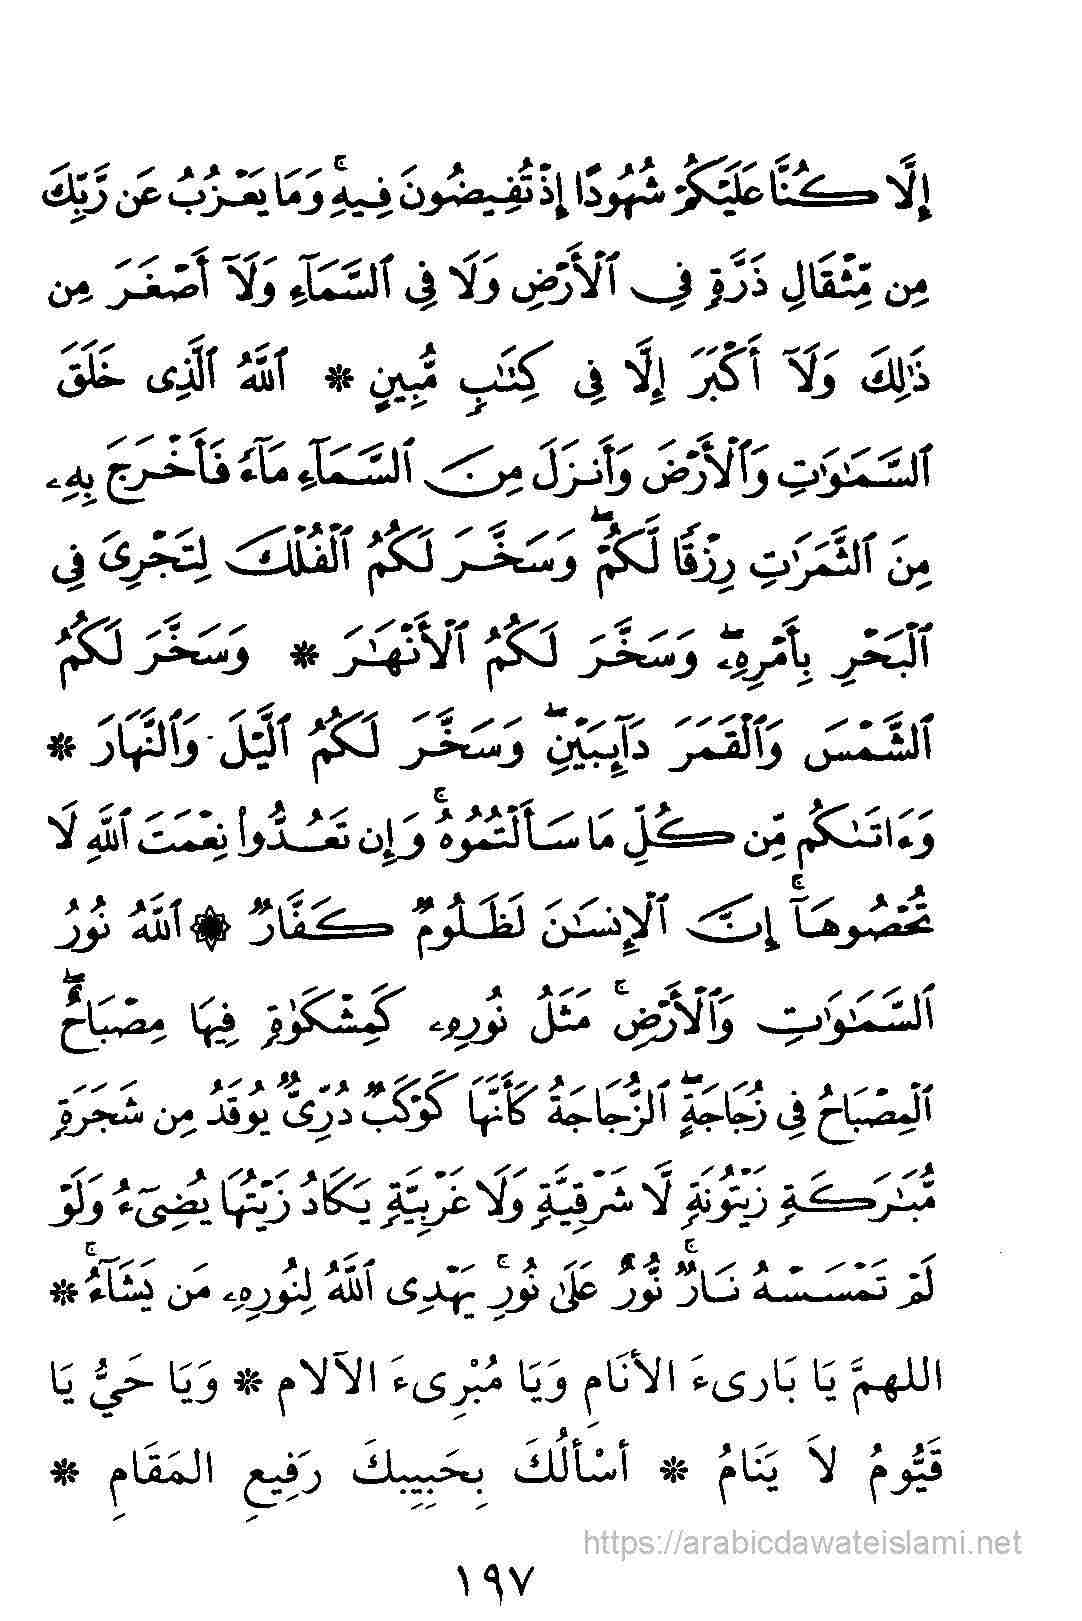 إِلَّا كُنَّا عَلَيْكُمْ شُهُودًا إِذْ تُفِيضُونَ فِيهِ ۚ وَمَا يَعْزُبُ عَن رَّبِّكَ
مِن مِّثْقَالِ ذَرَّةٍ فِي ٱلْأَرْضِ وَلَا فِي ٱلسَّمَآءِ وَلَآ أَصْغَرَ مِن
ذَٰلِكَ وَلَآ أَكْبَرَ إِلَّا فِي كِتَٰبٍ مُّبِينٍ * ٱللَّهُ ٱلَّذِى خَلَقَ
ٱلسَّمَٰوَٰتِ وَٱلْأَرْضَ وَأَنزَلَ مِنَ ٱلسَّمَآءِ مَآءً فَأَخْرَجَ بِهِۦ
مِنَ ٱلثَّمَرَٰتِ رِزْقًا لَّكُمْ ۖ وَسَخَّرَ لَكُمُ ٱلْفُلْكَ لِتَجْرِىَ فِى
ٱلْبَحْرِ بِأَمْرِهِۦ ۖ وَسَخَّرَ لَكُمُ ٱلْأَنْهَٰرَ * وَسَخَّرَ لَكُمُ
ٱلشَّمْسَ وَٱلْقَمَرَ دَآئِبَيْنِ ۖ وَسَخَّرَ لَكُمُ ٱلَّيْلَ وَٱلنَّهَارَ *
وَءَاتَىٰكُم مِّن كُلِّ مَا سَأَلْتُمُوهُ ۚ وَإِن تَعُدُّوا۟ نِعْمَتَ ٱللَّهِ لَا
تُحْصُوهَآ ۚ إِنَّ ٱلْإِنسَٰنَ لَظَلُومٌ كَفَّارٌ ۞ ٱللَّهُ نُورُ
ٱلسَّمَٰوَٰتِ وَٱلْأَرْضِ ۚ مَثَلُ نُورِهِۦ كَمِشْكَوٰةٍ فِيهَا مِصْبَاحٌ ۖ
ٱلْمِصْبَاحُ فِى زُجَاجَةٍ ۖ ٱلزُّجَاجَةُ كَأَنَّهَا كَوْكَبٌ دُرِّىٌّ يُوقَدُ مِن شَجَرَةٍ
مُّبَٰرَكَةٍ زَيْتُونَةٍ لَّا شَرْقِيَّةٍ وَلَا غَرْبِيَّةٍ يَكَادُ زَيْتُهَا يُضِىٓءُ وَلَوْ
لَمْ تَمْسَسْهُ نَارٌ ۚ نُّورٌ عَلَىٰ نُورٍ ۗ يَهْدِى ٱللَّهُ لِنُورِهِۦ مَن يَشَآءُ ۚ *
اللهمَّ يَا بَارِىءَ الأنَامِ وَيَا مُبْرِىءَ الآلام * وَيَا حَيُّ يَا
قَيُّومُ لاَ يَنَامُ * أسْألُكَ بِحَبِيبِكَ رَفِيعِ المَقَامِ *
https://arabicdawateislami.net
١٩٧